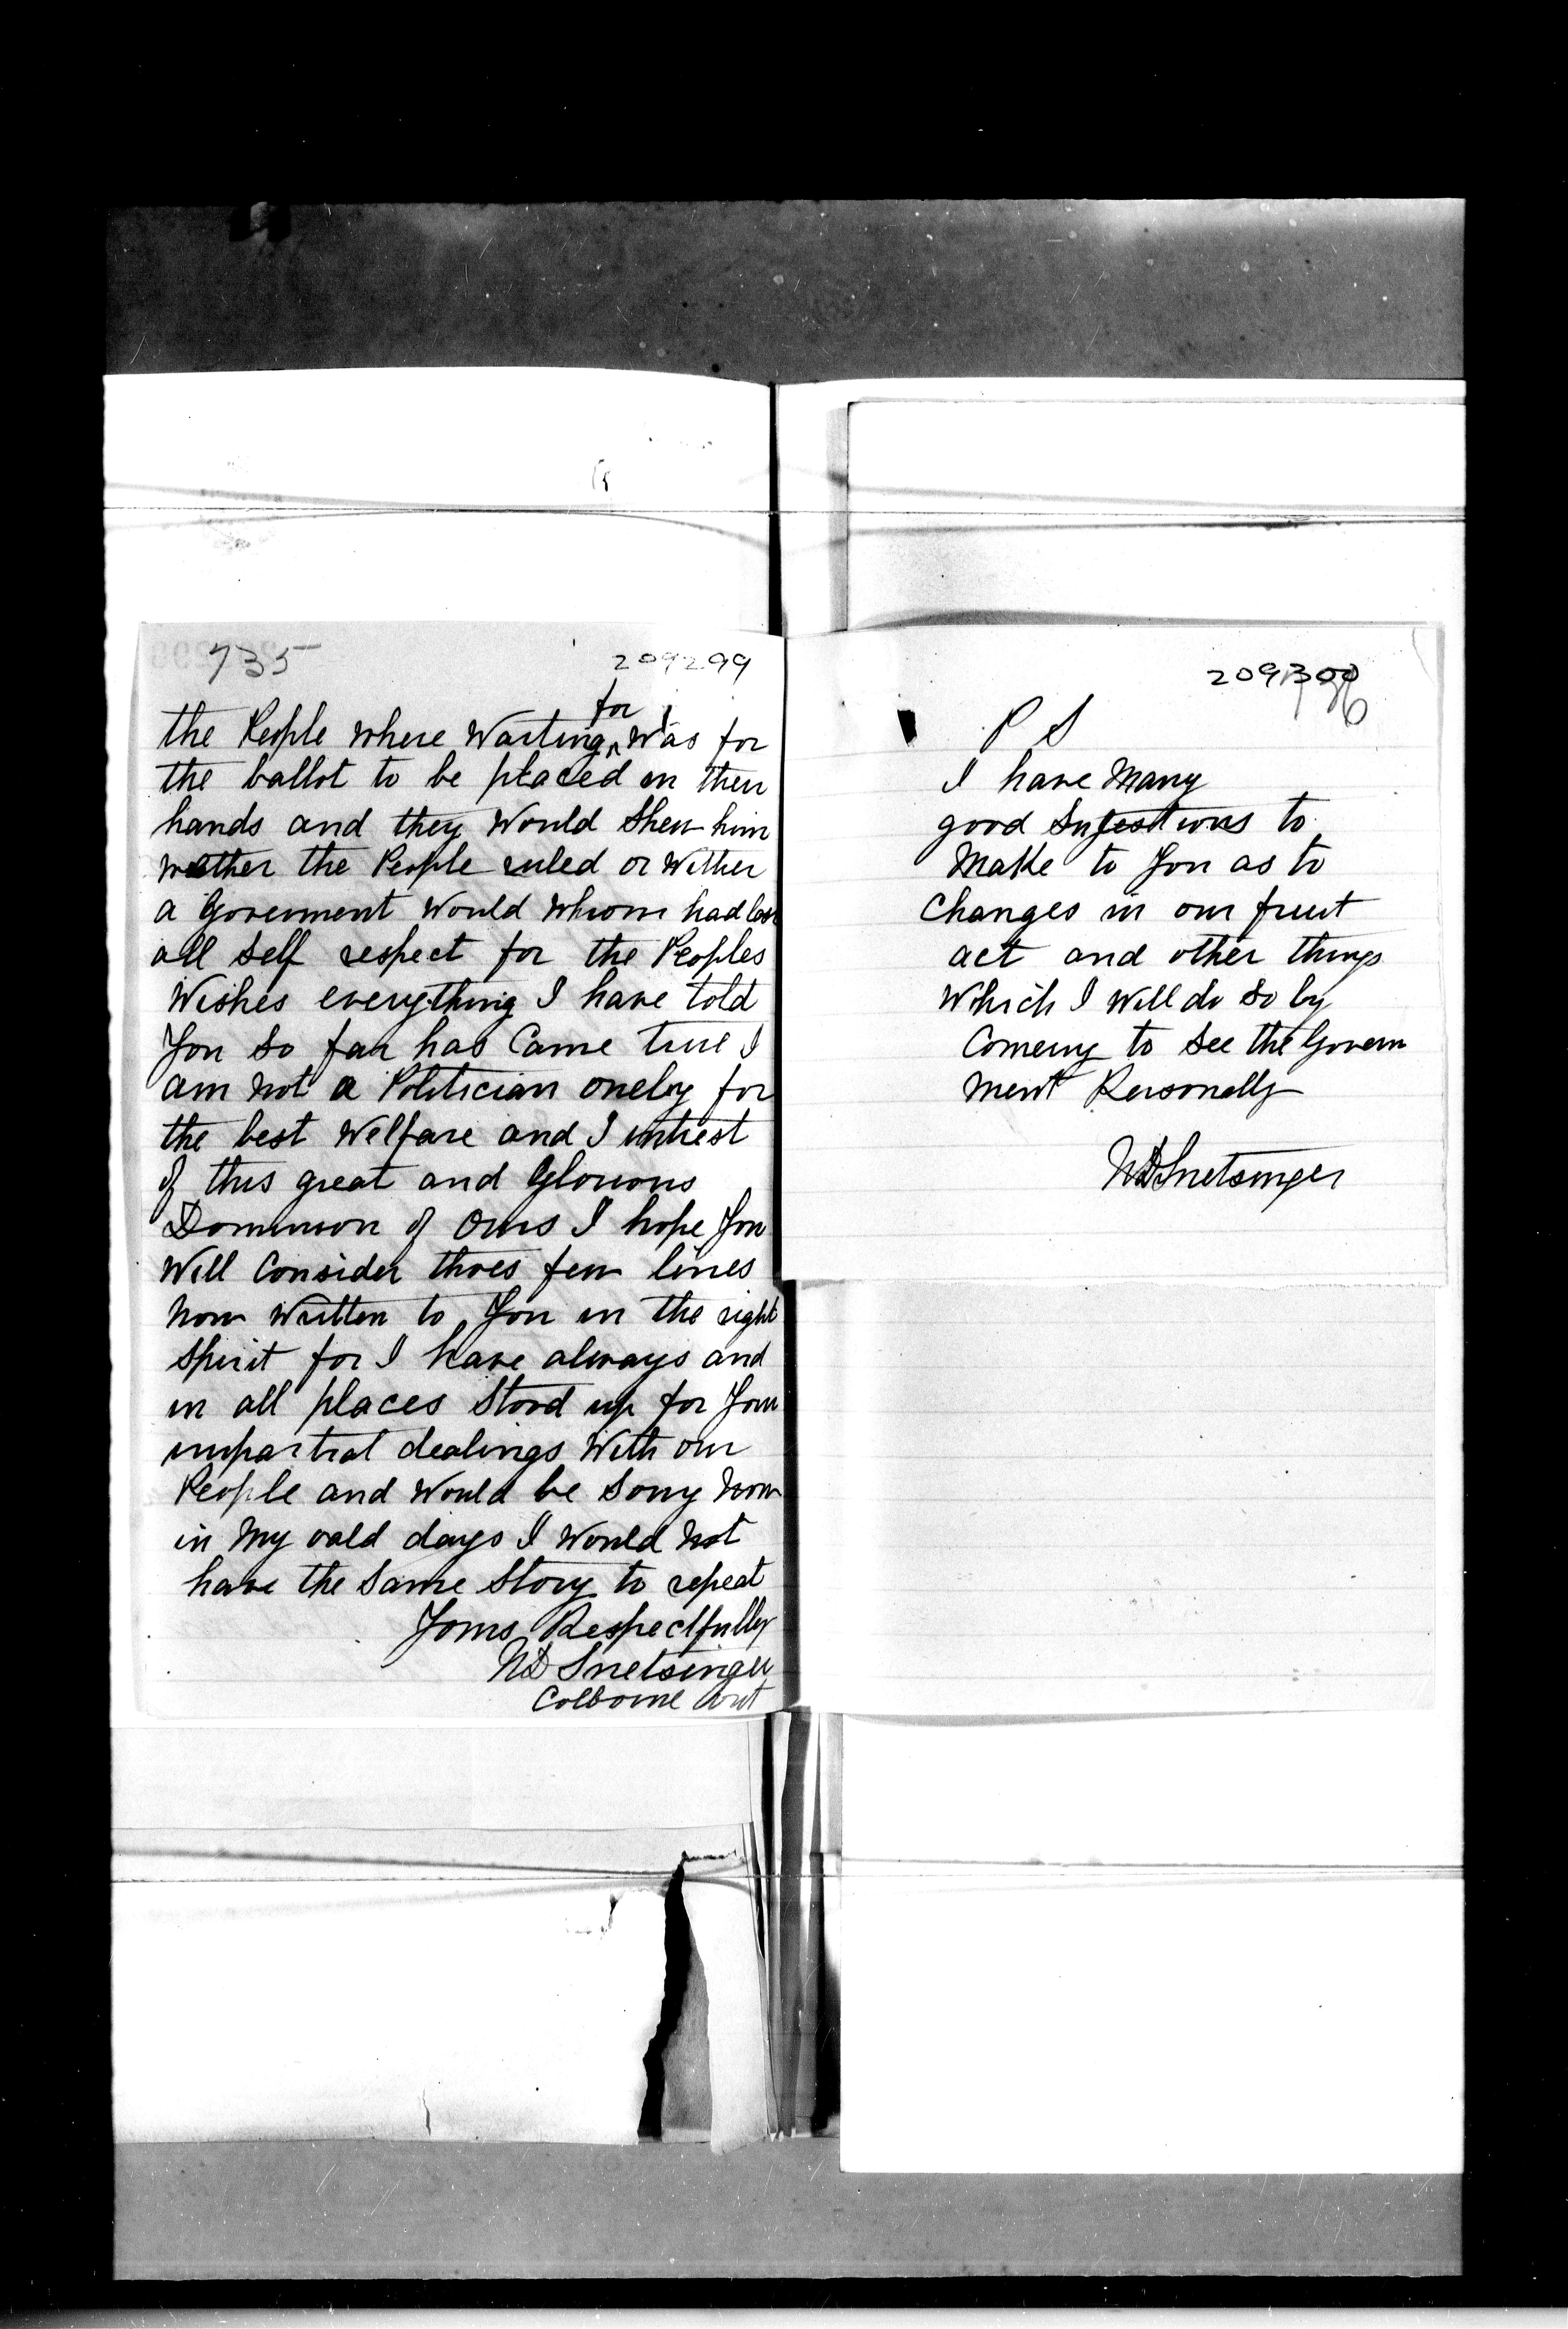 735
209299
the People where Waiting for Was for
the ballot to be placed in their
hands and they Would Shew him
wether the People ruled or Wither
a Goverment Would Whom had lost
all Self respect for the Peoples
Wishes everything I have told
You So far has Came true I
am not a Politician onely for
the best Welfare and I intrest
of this great and Glorious
Dominion of Ours I hope You
Will Consider thoes few lines
now Written to You in the right
Spirit for I have always and
in all places Stood up for Your
impartial dealings With our
People and Would be Sorry now
in My oald days I Would Not
have the Same Story to repeat
Yours Respectfully
WD Snetsinger
Colborne Ont
209300
736
P S
I have Many
good Sugestions to
Make to You as to
Changes in our fruit
act and other things
Which I Will do So by
Comeing to See the Govern
ment Personally
WD Snetsinger